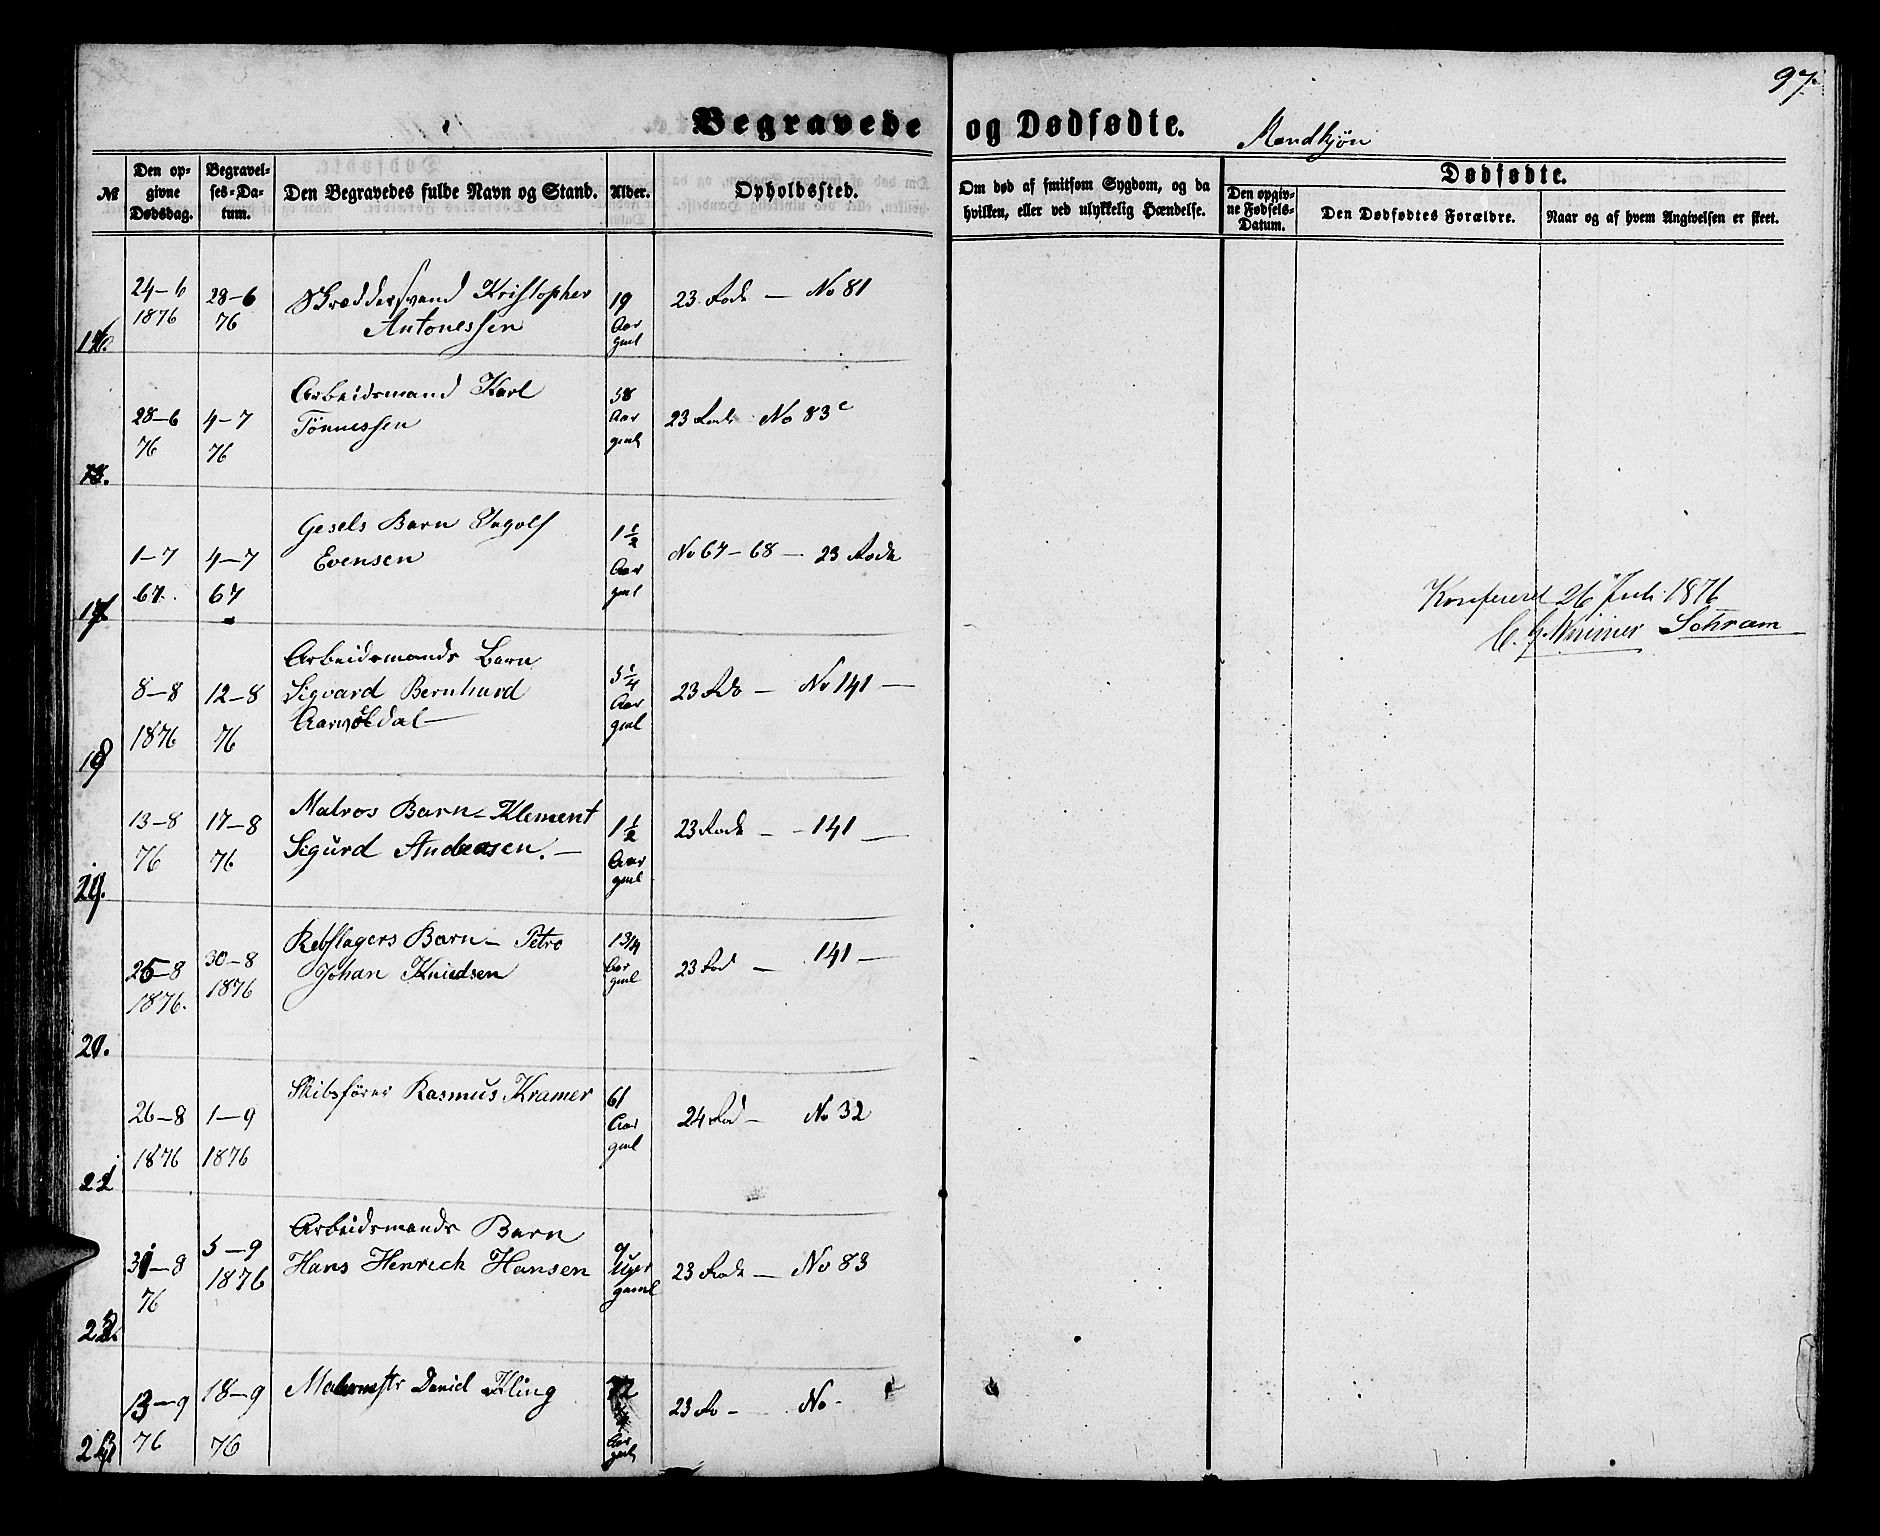 97.
Begravede og Dødfødte. Mandkjøn
№
Den opgivne Dødsdag.
Begravelses-Datum.
Den Begravedes fulde Navn og Stand.
Alder.
Opholdssted.
Om død af smitsom Sygdom, og da hvilken, eller ved ulykkelig Hændelse.
Dødfødte.
Den opgivne Fødsels-Datum.
Den Dødfødtes Forældre.
Naar og af hvem Angivelsen er skeet.
24-6 28-6 Skræddersvend Kristopher 19 23 Rode — No 81
1876 76 Antonessen Aar
16. gml
28-6 4-7 Arbeidsmand Karl 58 23 Rode No 83c
76 76 Tönnessen Aar
gml
1-7 4-7 Gesels Barn Ingolf 1 1/2 No 67-68 — 23 Rode
67. 67 Evensen Aar
gml
Konfereret 26 Juli 1876
Schram
Arbeidsmands Barn
8-8 12-8 Sigvard Bernhard 5 1/4 23 Rode — No 141 —
1876 76 Aar
gml
13-8 17-8 Matros Barn - Klement 1 1/2 23 Rode — 141 —
76 76 Sigurd Andreasen. — Aar
gml
25-8 30-8 Rebslagers Barn - Petro 1 3/4 23 Rod — 141 —
1876. 1876 Johan Knudsen Aar
gml
26-8 1-9 Skibsförer Rasmus Kramer 61 24 Rod — No 32
1876 1876 Aar
gml
31-8 5-9 Arbeidsmands Barn 9 23 Rode — No 83
76 1876 Hans Henrich Hansen Uger
gaml
13-9 18-9 Daniel Kling 72 23 Ro — No -
76 76 Aar
gml